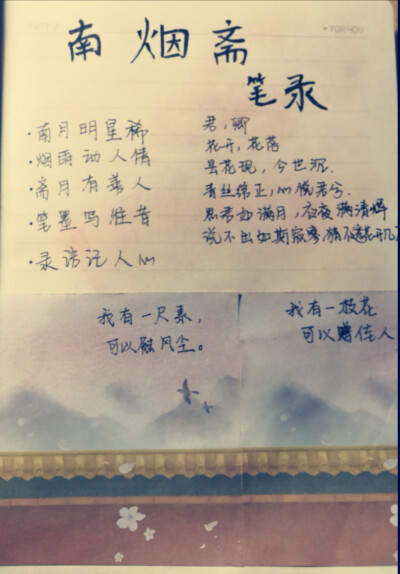 FOR YOU
南烟斋
笔录
·南月明星稀
·烟雨动人情
·斋月有善人
·笔墨写往昔
·录访记人心
君,卿
花开,花落
昙花现,今世沉.
青丝绵正,心悦君兮.
思君如满月,夜夜满清辉
说不出如期寂寥,猜不透花开几
我有一尺素,
可以慰风尘。
我有一枝花
可以赠佳人